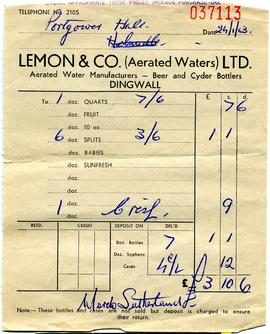 WHERE APPROPRIATE THESE PRICES INCLUDE PURCHASE TAX
TELEPHONE NO. 2105
037113
Portgower Hall
Helmsdale
Date 24/1/63.
LEMON & CO. (Aerated Waters) LTD.
Aerated Water Manufacturers — Beer and Cyder Bottlers
DINGWALL
To £ s. d.
1 doz. QUARTS 7/6 7 6
doz. FRUIT
doz. 10 oz.
6 doz. SPLITS 3/6 1 1
doz. BABIES
doz. SUNFRESH
doz.
doz.
1 doz. Crisp 9
RETD. CREDIT DEPOSIT ON DEL'D
Doz. Bottles 7 1 1
Doz. Syphons
Cases 4 12
£ £3 10 6
Sutherland
Note:—These bottles and cases are not sold but deposit is charged to ensure
their return.